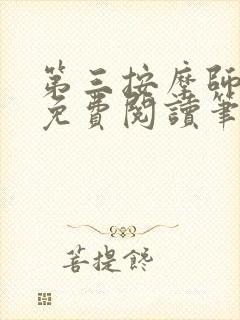 第三按摩師
免費閱讀筆
菩提馋